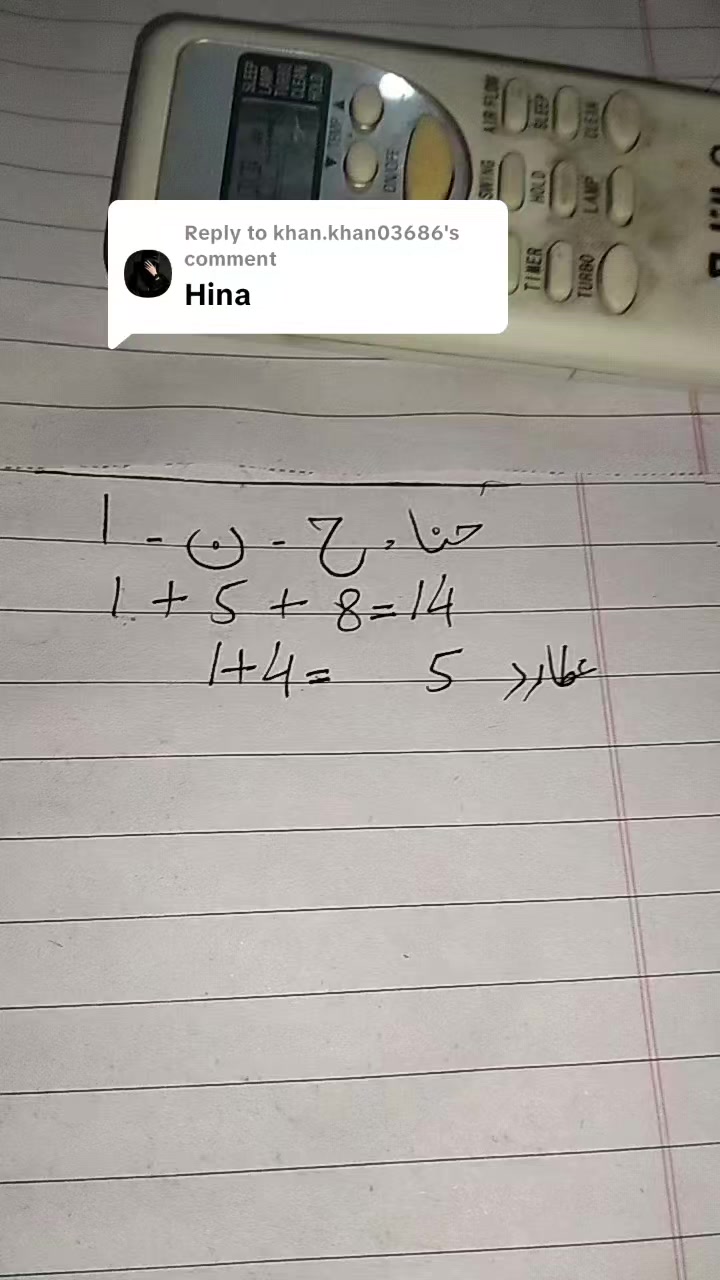 SLEEP
LAMP
TURBO
CLEAN
HOLD
▲ TEMP ▼
ON/OFF
AIR FLOW
SLEEP
CLEAN
SWING
HOLD
LAMP
TIMER
TURBO
Reply to khan.khan03686's
comment
Hina
حنا، ح - ن - ا
1 + 5 + 8 = 14
1+4= 5 عطارد